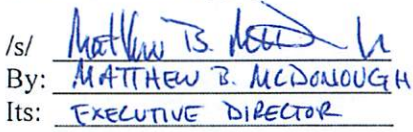 /s/ Matthew B. McD
By: MATTHEW B. MCDONOUGH
Its: EXECUTIVE DIRECTOR